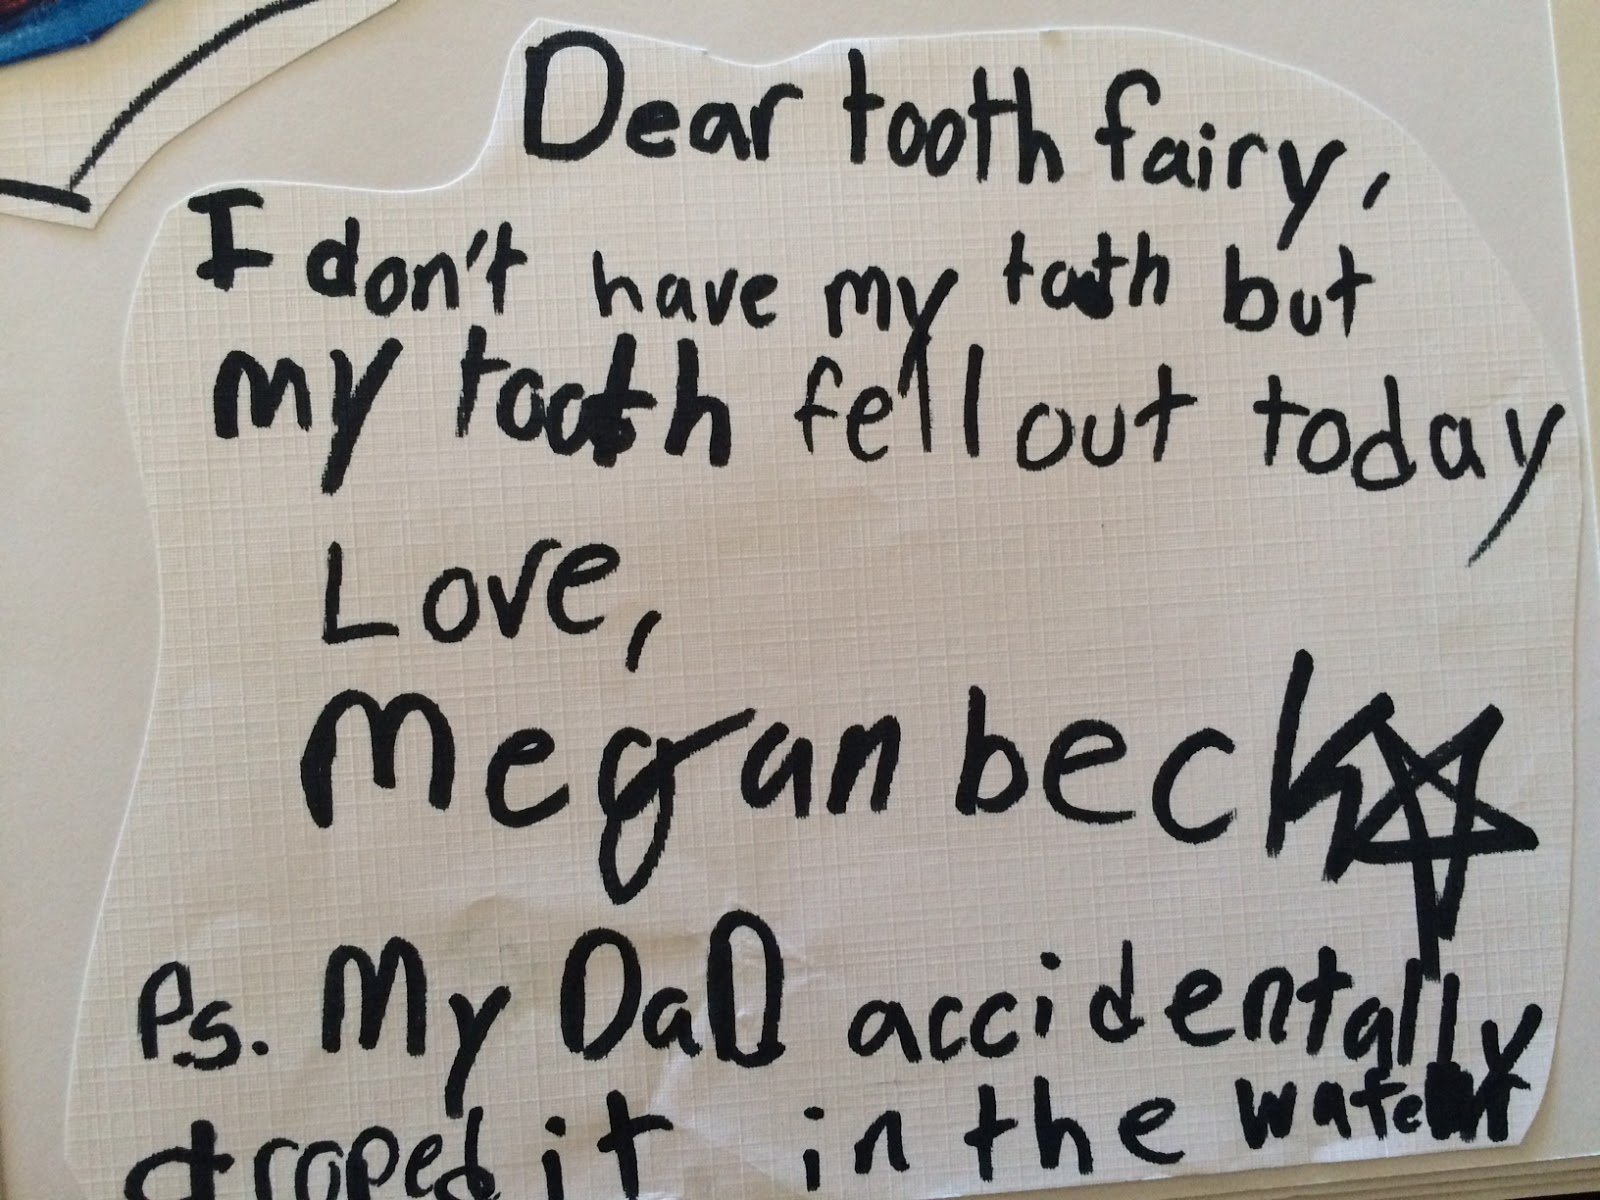 Dear tooth fairy,
I don't have my tooth but
my tooth fell out today
Love,
Megan beck
Ps. My DaD accidentally
droped it in the water